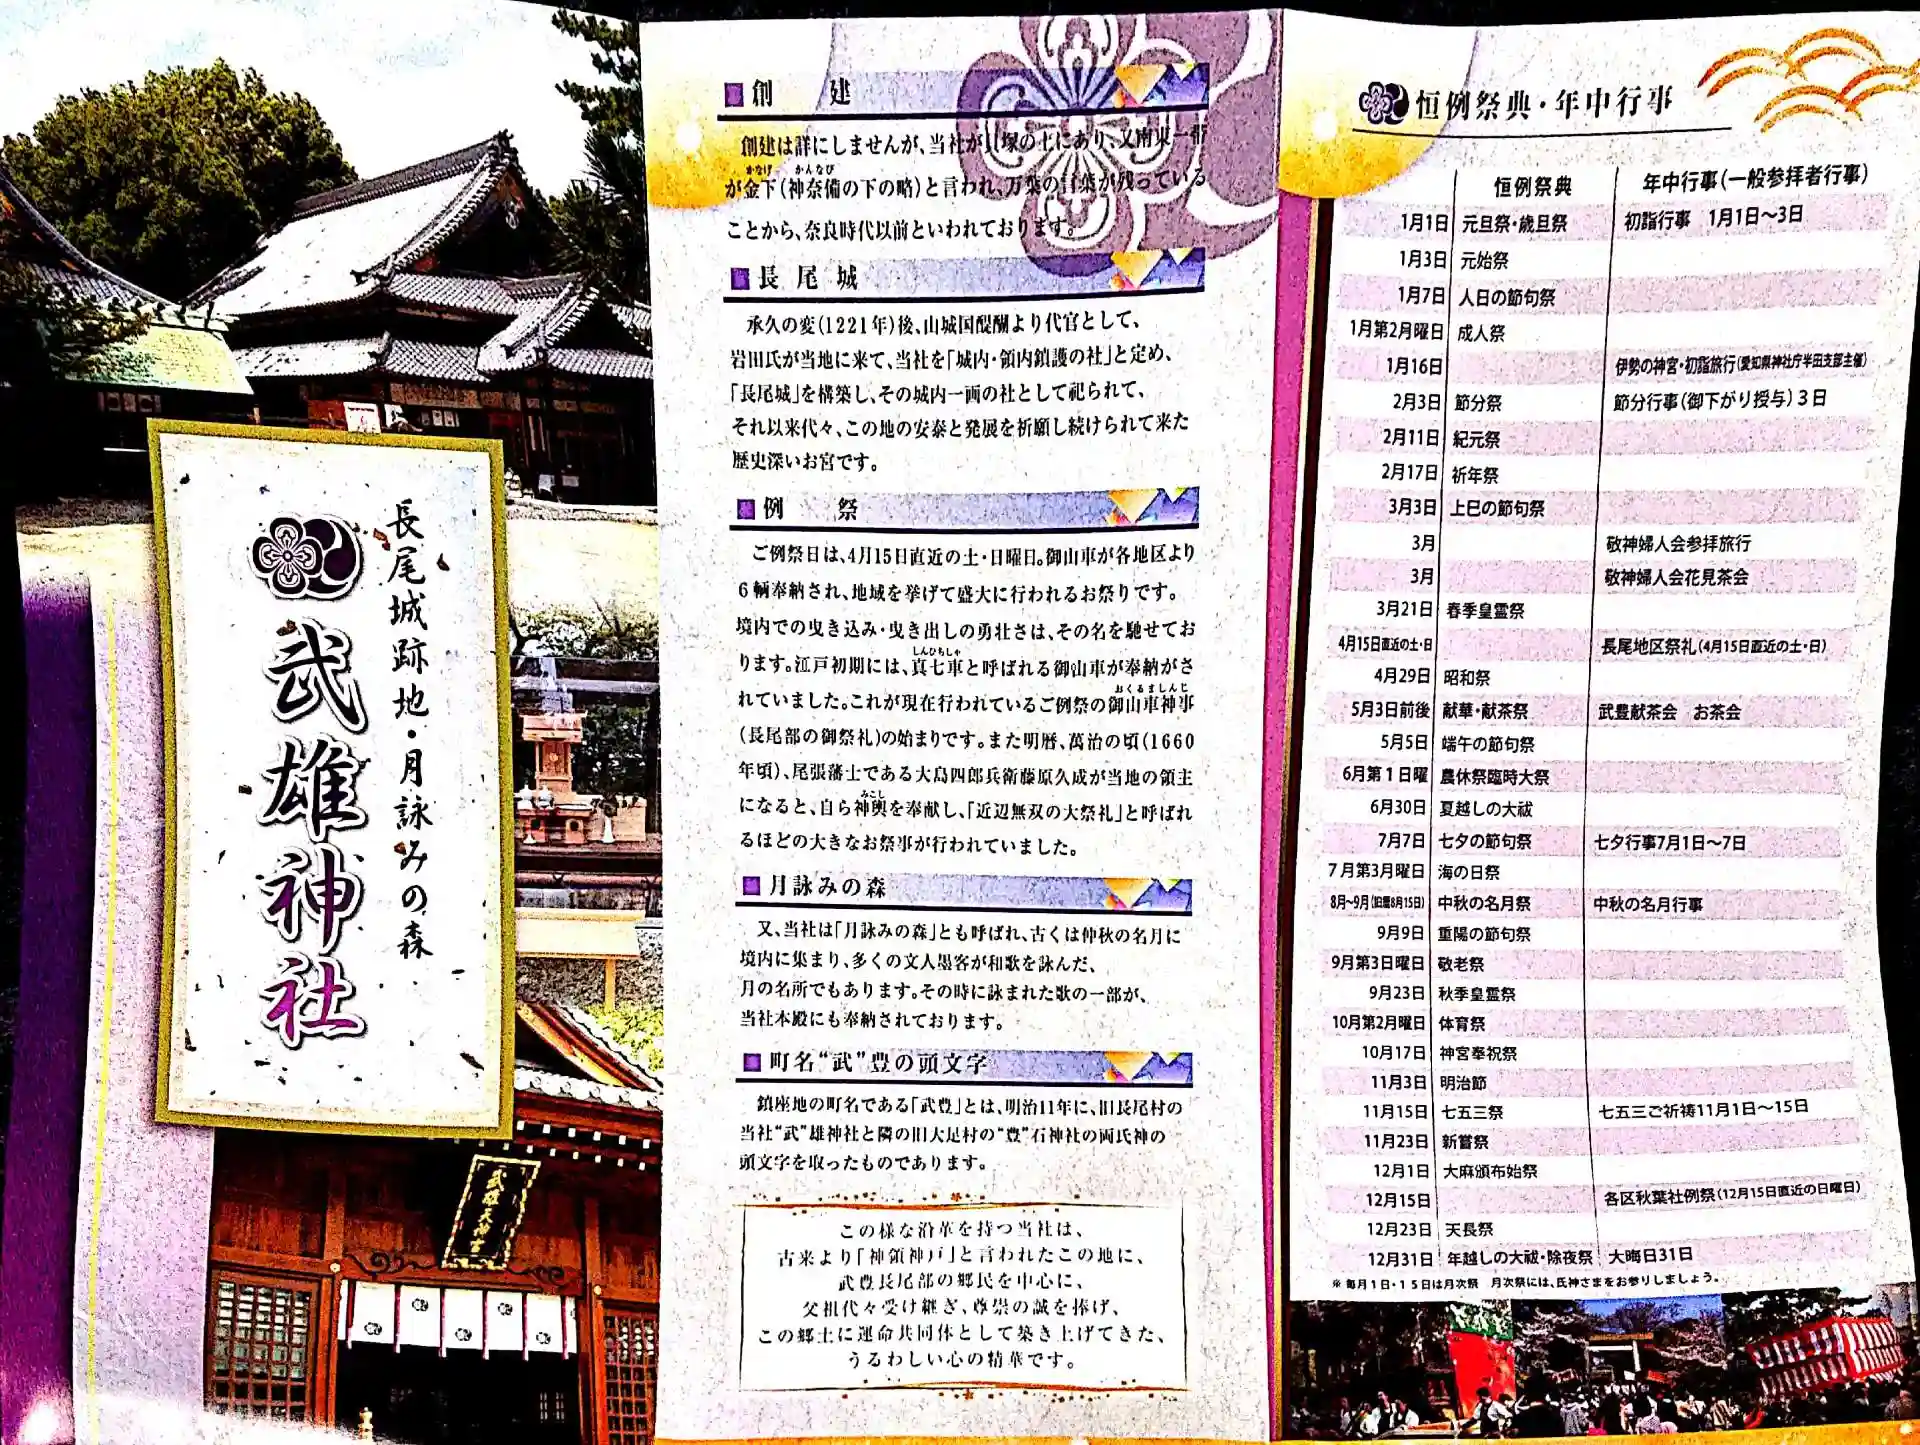 長尾城跡地・月詠みの森
武雄神社
武雄天神宮
創建
創建は詳にしませんが、当社が貝塚の上にあり、又南東一帯
かなげ かんなび
が金下(神奈備の下の略)と言われ、万葉の言葉が残っている
ことから、奈良時代以前といわれております。
長尾城
承久の変(1221年)後、山城国醍醐より代官として、
岩田氏が当地に来て、当社を「城内・領内鎮護の社」と定め、
「長尾城」を構築し、その城内一画の社として祀られて、
それ以来代々、この地の安泰と発展を祈願し続けられて来た
歴史深いお宮です。
例祭
ご例祭日は、4月15日直近の土・日曜日。御山車が各地区より
6輌奉納され、地域を挙げて盛大に行われるお祭りです。
境内での曳き込み・曳き出しの勇壮さは、その名を馳せてお
しんひちしゃ
ります。江戸初期には、真七車と呼ばれる御山車が奉納がさ
おくるましんじ
れていました。これが現在行われているご例祭の御山車神事
(長尾部の御祭礼)の始まりです。また明暦、萬治の頃(1660
年頃)、尾張藩士である大島四郎兵衛藤原久成が当地の領主
みこし
になると、自ら神輿を奉献し、「近辺無双の大祭礼」と呼ばれ
るほどの大きなお祭事が行われていました。
月詠みの森
又、当社は「月詠みの森」とも呼ばれ、古くは仲秋の名月に
境内に集まり、多くの文人墨客が和歌を詠んだ、
月の名所でもあります。その時に詠まれた歌の一部が、
当社本殿にも奉納されております。
町名“武”豊の頭文字
鎮座地の町名である「武豊」とは、明治11年に、旧長尾村の
当社“武”雄神社と隣の旧大足村の“豊”石神社の両氏神の
頭文字を取ったものであります。
この様な沿革を持つ当社は、
古来より「神領神戸」と言われたこの地に、
武豊長尾部の郷民を中心に、
父祖代々受け継ぎ、尊崇の誠を捧げ、
この郷土に運命共同体として築き上げてきた、
うるわしい心の精華です。
恒例祭典・年中行事
恒例祭典 年中行事(一般参拝者行事)
1月1日 元旦祭・歳旦祭 初詣行事 1月1日〜3日
1月3日 元始祭
1月7日 人日の節句祭
1月第2月曜日 成人祭
1月16日 伊勢の神宮・初詣旅行(愛知県神社庁半田支部主催)
2月3日 節分祭 節分行事(御下がり授与)3日
2月11日 紀元祭
2月17日 祈年祭
3月3日 上巳の節句祭
3月 敬神婦人会参拝旅行
3月 敬神婦人会花見茶会
3月21日 春季皇霊祭
4月15日直近の土・日 長尾地区祭礼(4月15日直近の土・日)
4月29日 昭和祭
5月3日前後 献華・献茶祭 武豊献茶会 お茶会
5月5日 端午の節句祭
6月第1日曜 農休祭臨時大祭
6月30日 夏越しの大祓
7月7日 七夕の節句祭 七夕行事7月1日〜7日
7月第3月曜日 海の日祭
8月〜9月(旧暦8月15日) 中秋の名月祭 中秋の名月行事
9月9日 重陽の節句祭
9月第3日曜日 敬老祭
9月23日 秋季皇霊祭
10月第2月曜日 体育祭
10月17日 神宮奉祝祭
11月3日 明治節
11月15日 七五三祭 七五三ご祈祷11月1日〜15日
11月23日 新嘗祭
12月1日 大麻頒布始祭
12月15日 各区秋葉社例祭(12月15日直近の日曜日)
12月23日 天長祭
12月31日 年越しの大祓・除夜祭 大晦日31日
※毎月1日・15日は月次祭 月次祭には、氏神さまをお参りしましょう。